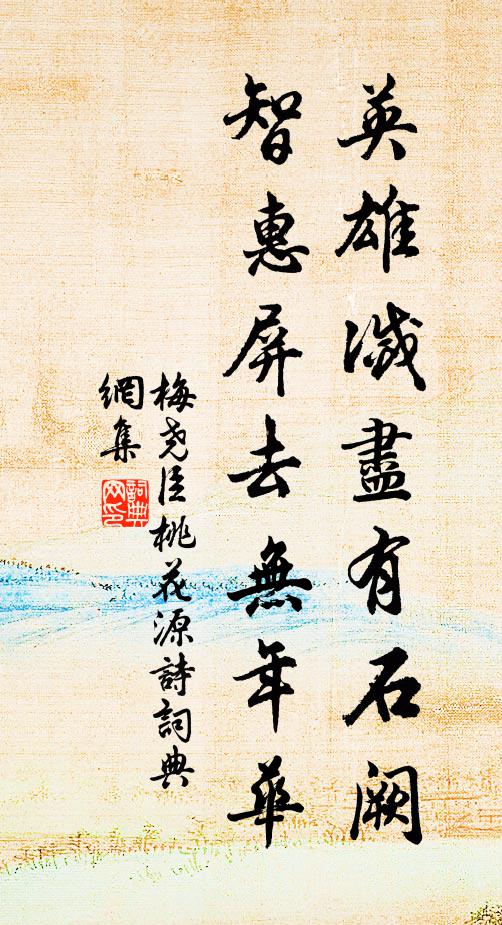 英雄滅盡有石闕
智惠屏去無年華
梅堯臣桃花源詩詞典
網集
詞典
網印